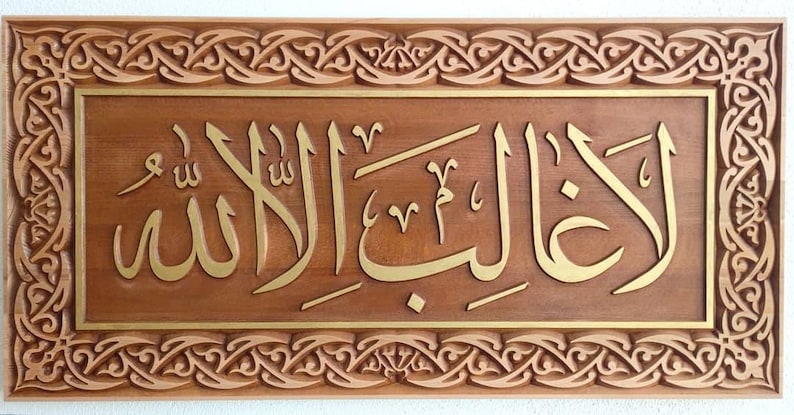 لَا غَالِبَ اِلَّا اللّٰهُ